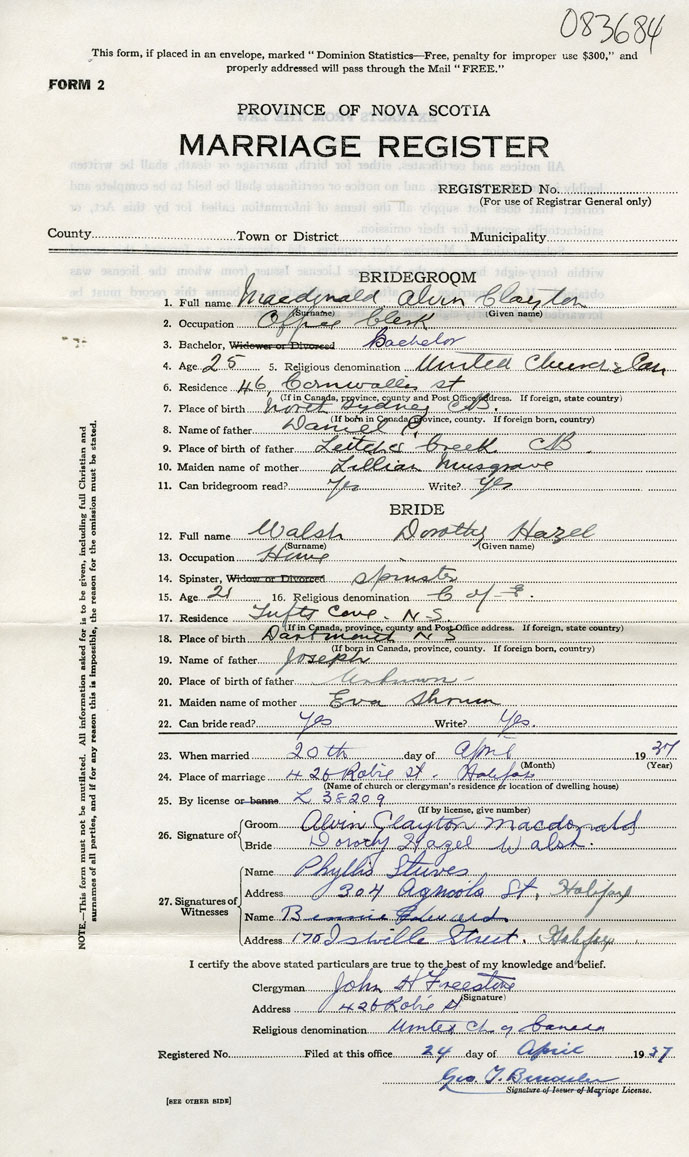 083684
This form, if placed in an envelope, marked "Dominion Statistics—Free, penalty for improper use $300," and
properly addressed will pass through the Mail "FREE."
FORM 2
PROVINCE OF NOVA SCOTIA
MARRIAGE REGISTER
REGISTERED No.
(For use of Registrar General only)
County Town or District Municipality
BRIDEGROOM
1. Full name Macdonald Alvin Clayton
(Surname) (Given name)
2. Occupation Office Clerk
3. Bachelor, Widower or Divorced Bachelor
4. Age 25 5. Religious denomination United Church Can
6. Residence 46 Cornwallis st
(If in Canada, province, county and Post Office address. If foreign, state country)
7. Place of birth North Sydney CB.
(If born in Canada, province, county. If foreign born, country)
8. Name of father Daniel
9. Place of father Leitches Creek CB.
10. Maiden name of mother Lillian Musgrave
11. Can bridegroom read? Yes Write? Yes
BRIDE
12. Full name Walsh Dorothy Hazel
(Surname) (Given name)
13. Occupation Home
14. Spinster, Widow or Divorced Spinster
15. Age 21 16. Religious denomination C of E.
17. Residence Tufts Cove. N.S.
(If in Canada, province, county and Post Office address. If foreign, state country)
18. Place of birth Dartmouth N S
(If born in Canada, province, county. If foreign born, country)
19. Name of father Joseph
20. Place of birth of father Unknown
21. Maiden name of mother Eva
22. Can bride read? Yes Write? Yes.
23. When married 20th day of April 1937
(Month) (Year)
24. Place of marriage 426 Robie St. Halifax
(Name of church or clergyman's residence or location of dwelling house)
25. By license or banns L 38209
(If by license, give number)
26. Signature of Groom Alvin Clayton Macdonald
Bride Dorothy Hazel Walsh.
27. Signatures of Witnesses
Name Phyllis
Address 304 Agricola St, Halifax
Name Edward
Address 170 Street, Halifax
I certify the above stated particulars are true to the best of my knowledge and belief.
Clergyman John H Freestone
(Signature)
Address 426 Robie St
Religious denomination United Ch. of Canada
Registered No. Filed at this office 24 day of April 1937
Geo. T.
Signature of Issuer of Marriage License.
[SEE OTHER SIDE]
NOTE.—This form must not be mutilated. All information asked for is to be given, including full Christian and
surnames of all parties, and if for any reason this is impossible, the reason for the omission must be stated.